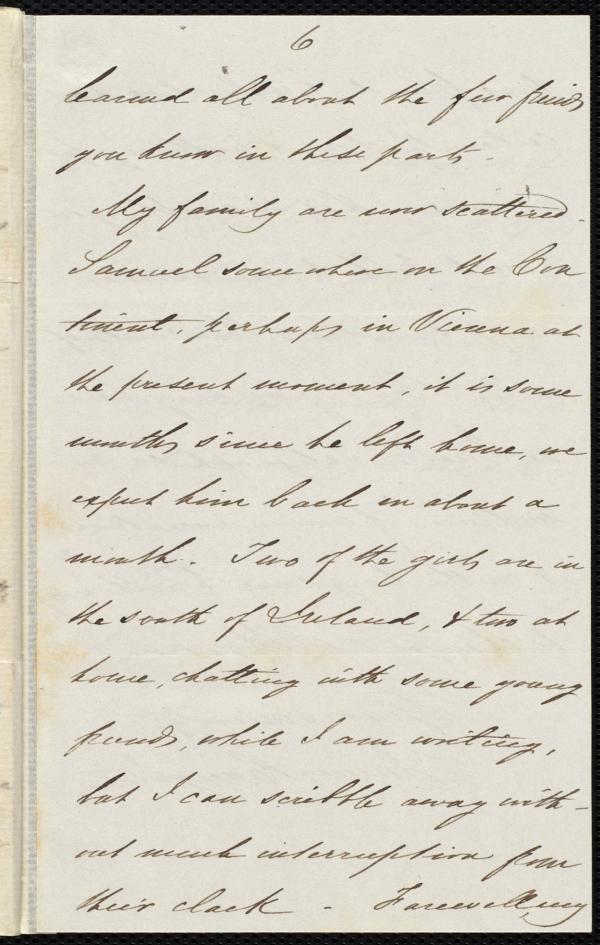 6
learned all about the few friends
you know in these parts.
My family are now scattered.
Samuel somewhere on the Con
tinent, perhaps in Vienna at
the present moment, it is some
months since he left home, we
expect him back in about a
month. Two of the girls are in
the south of Ireland, & two at
home, chatting with some young
friends, while I am writing,
but I can scribble away with-
out much interruption from
their clack - Farewell, my